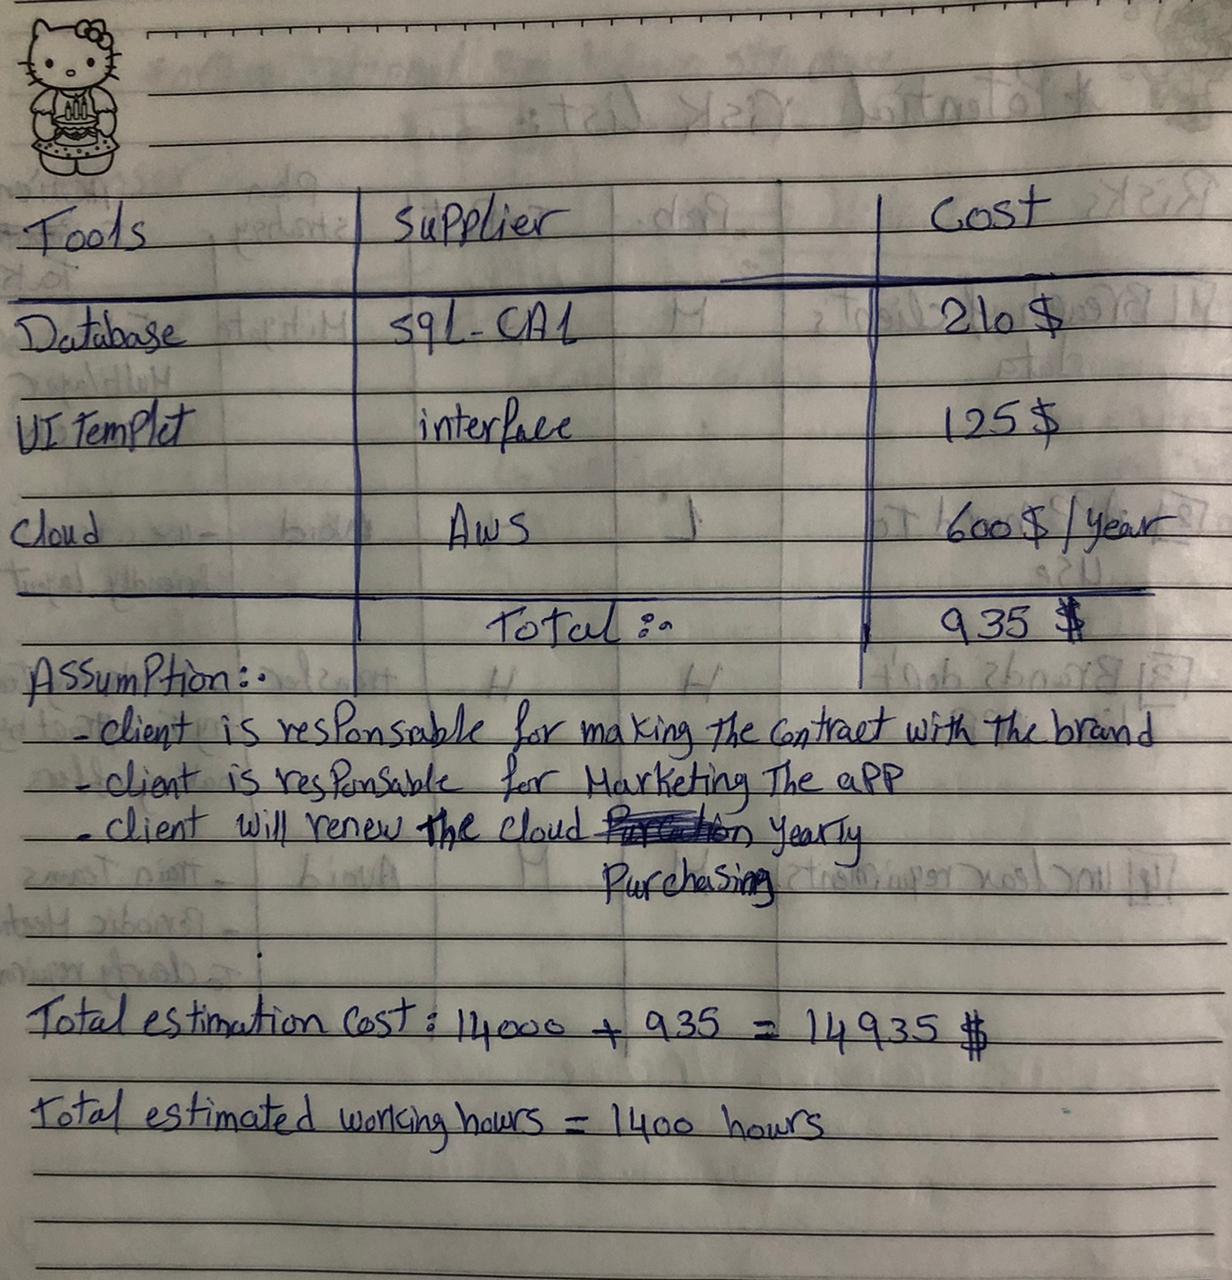 Tools supplier Cost
Database SQL-CAL 210 $
UI Templet interface 125 $
Cloud AWS 600 $ / year
Total :- 935 $
Assumption :-
- client is responsable for making the contract with the brand
- client is responsable for Marketing The app
- client will renew the cloud yearly
Purchasing
Total estimation cost : 14000 + 935 = 14935 $
Total estimated working hours = 1400 hours